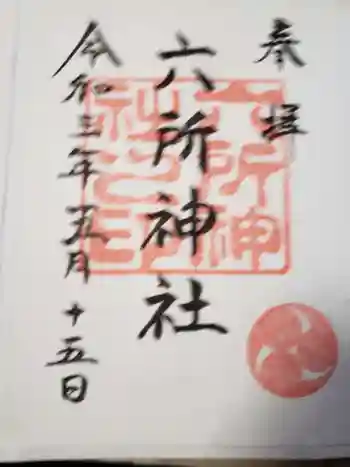 奉拝
六所神社
令和三年五月十五日
六所神
社之印